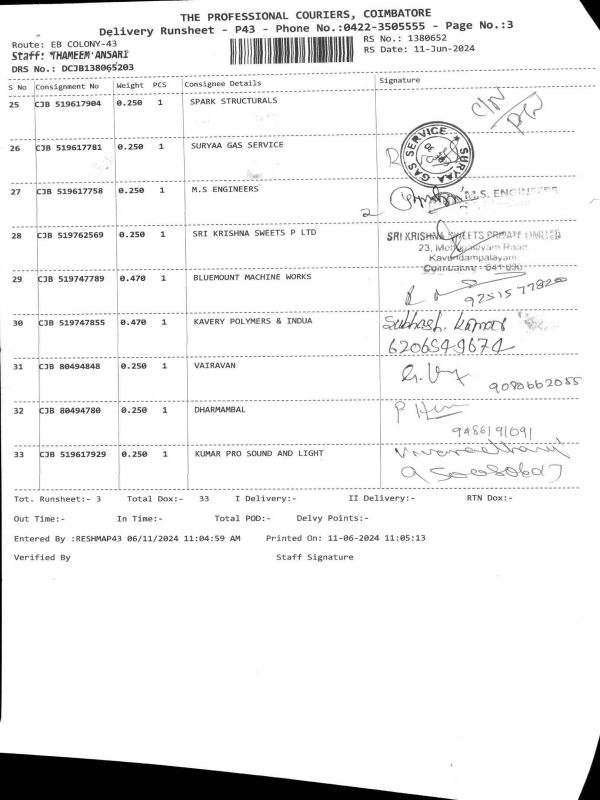 THE PROFESSIONAL COURIERS, COIMBATORE
Delivery Runsheet - P43 - Phone No.:0422-3505555 - Page No.:3
Route: EB COLONY-43
RS No.: 1380652
Staff: THAMEEM ANSARI
RS Date: 11-Jun-2024
DRS No.: DCJB138065203
S No Consignment No Weight PCS Consignee Details Signature
25 CJB 519617904 0.250 1 SPARK STRUCTURALS
26 CJB 519617781 0.250 1 SURYAA GAS SERVICE
SURYAA GAS SERVICE
27 CJB 519617758 0.250 1 M.S ENGINEERS
M.S. ENGINEERS
2
28 CJB 519762569 0.250 1 SRI KRISHNA SWEETS P LTD
SRI KRISHNA SWEETS PRIVATE LIMITED
23, Mettupalayam Road
Kavundampalayam
Coimbatore - 641 030
29 CJB 519747789 0.470 1 BLUEMOUNT MACHINE WORKS
9251577820
30 CJB 519747855 0.470 1 KAVERY POLYMERS & INDUA
Subhash. Kumar
6206549674
31 CJB 80494848 0.250 1 VAIRAVAN
9080662055
32 CJB 80494780 0.250 1 DHARMAMBAL
9486191091
33 CJB 519617929 0.250 1 KUMAR PRO SOUND AND LIGHT
Tot. Runsheet:- 3 Total Dox:- 33 I Delivery:- II Delivery:- RTN Dox:-
Out Time:- In Time:- Total POD:- Delvy Points:-
Entered By :RESHMAP43 06/11/2024 11:04:59 AM Printed On: 11-06-2024 11:05:13
Verified By Staff Signature